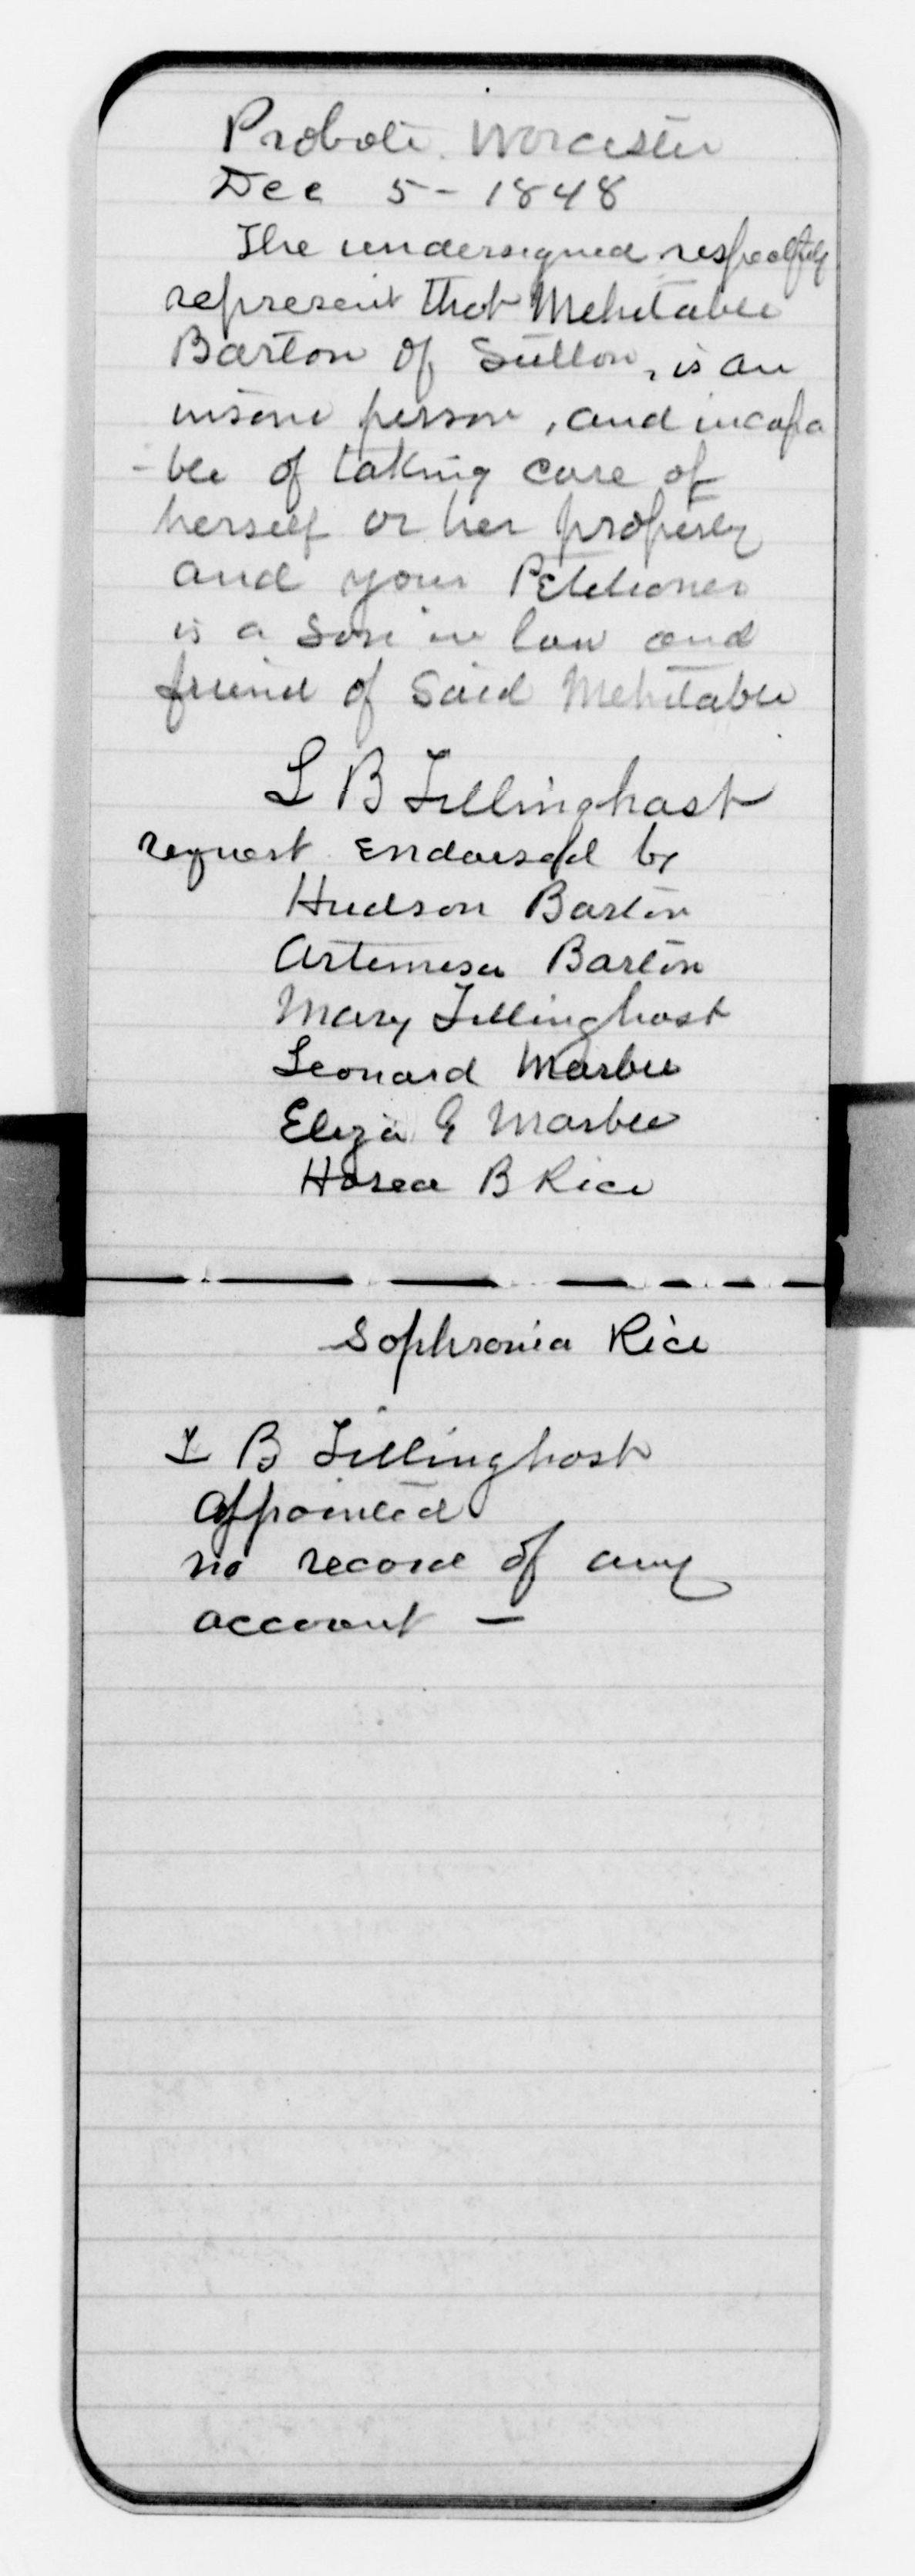 Probate Worcester
Dec 5 - 1848
The undersigned respectfuly
represent that Mehitable
Barton of Sutton, is an
insane person, and incapa
-ble of taking care of
herself or her property
and your Petitioner
is a son in law and
friend of said Mehitable
L B Tillinghast
request endorsed by
Hudson Barton
Artemesa Barton
Mary Tillinghast
Leonard Marble
Eliza G Marble
Hosea B Rice
Sophronia Rice
L B Tillinghast
appointed
no record of any
account —